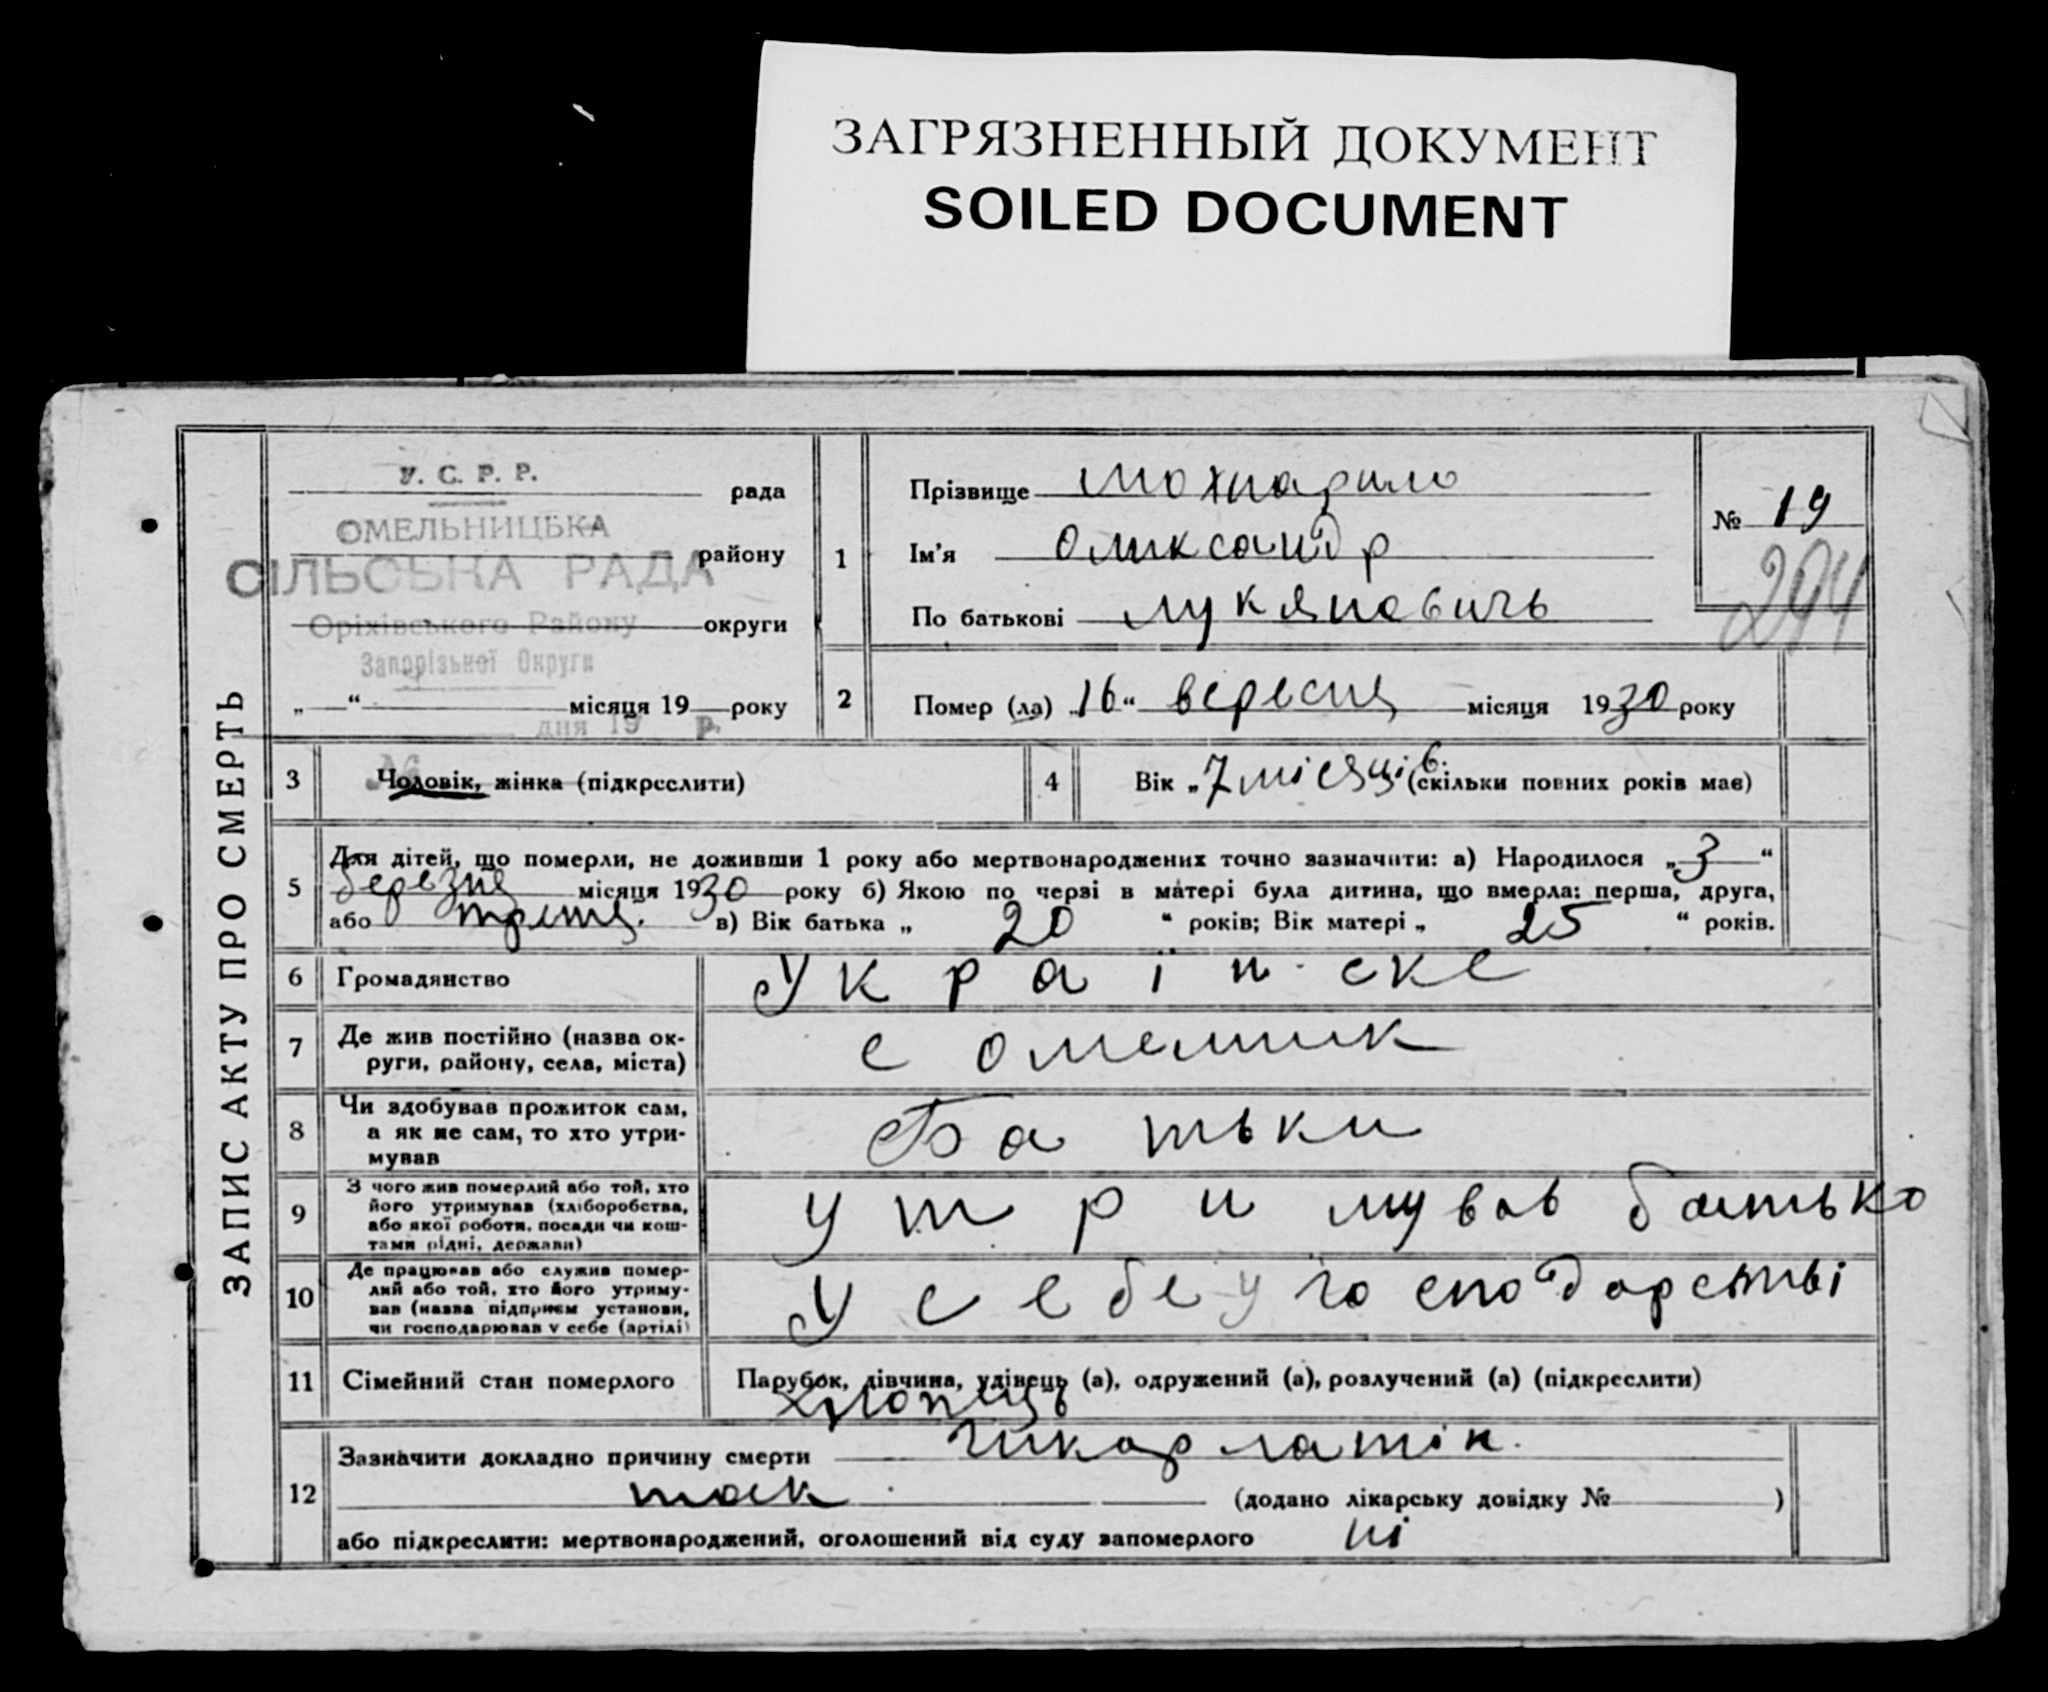 ЗАГРЯЗНЕННЫЙ ДОКУМЕНТ
SOILED DOCUMENT
ЗАПИС АКТУ ПРО СМЕРТЬ
У. С. Р. Р.
рада
ОМЕЛЬНИЦЬКА
району
СІЛЬСЬКА РАДА
Оріхівського Району
округи
Запорізької Округи
„ “ місяця 19 року
дня 19 р.
№
1
Прізвище Мохнарило
Ім'я Оликсандр
По батькові Лукяновичь
№ 19
294
2
Помер (ла) „16“ вересня місяця 1930 року
3 Чоловік, жінка (підкреслити)
4 Вік „7 місяців. (скільки повних років має)
5 Для дітей, що померли, не доживши 1 року або мертвонароджених точно зазначити: а) Народилося „3“
березня місяця 1930 року б) Якою по черзі в матері була дитина, що вмерла: перша, друга,
або третя. в) Вік батька „ 20 “ років; Вік матері „ 25 “ років.
6 Громадянство Українске
7 Де жив постійно (назва ок-
руги, району, села, міста)
с Омелник
8 Чи здобував прожиток сам,
а як не сам, то хто утри-
мував
Батьки
9 З чого жив померлий або той, хто
його утримував (хліборобства,
або якої роботи, посади чи кош-
тами рідні, держави)
утримував батько
10 Де працював або служив помер-
лий або той, хто його утриму-
вав (назва підприєм установи,
чи господарював у себе (артілі)
У себе у господарстві
11 Сімейний стан померлого Парубок, дівчина, удівець (а), одружений (а), розлучений (а) (підкреслити)
хлопець
12 Зазначити докладно причину смерти Шкарлатін.
так (додано лікарську довідку № )
або підкреслити: мертвонароджений, оголошений від суду запомерлого ні